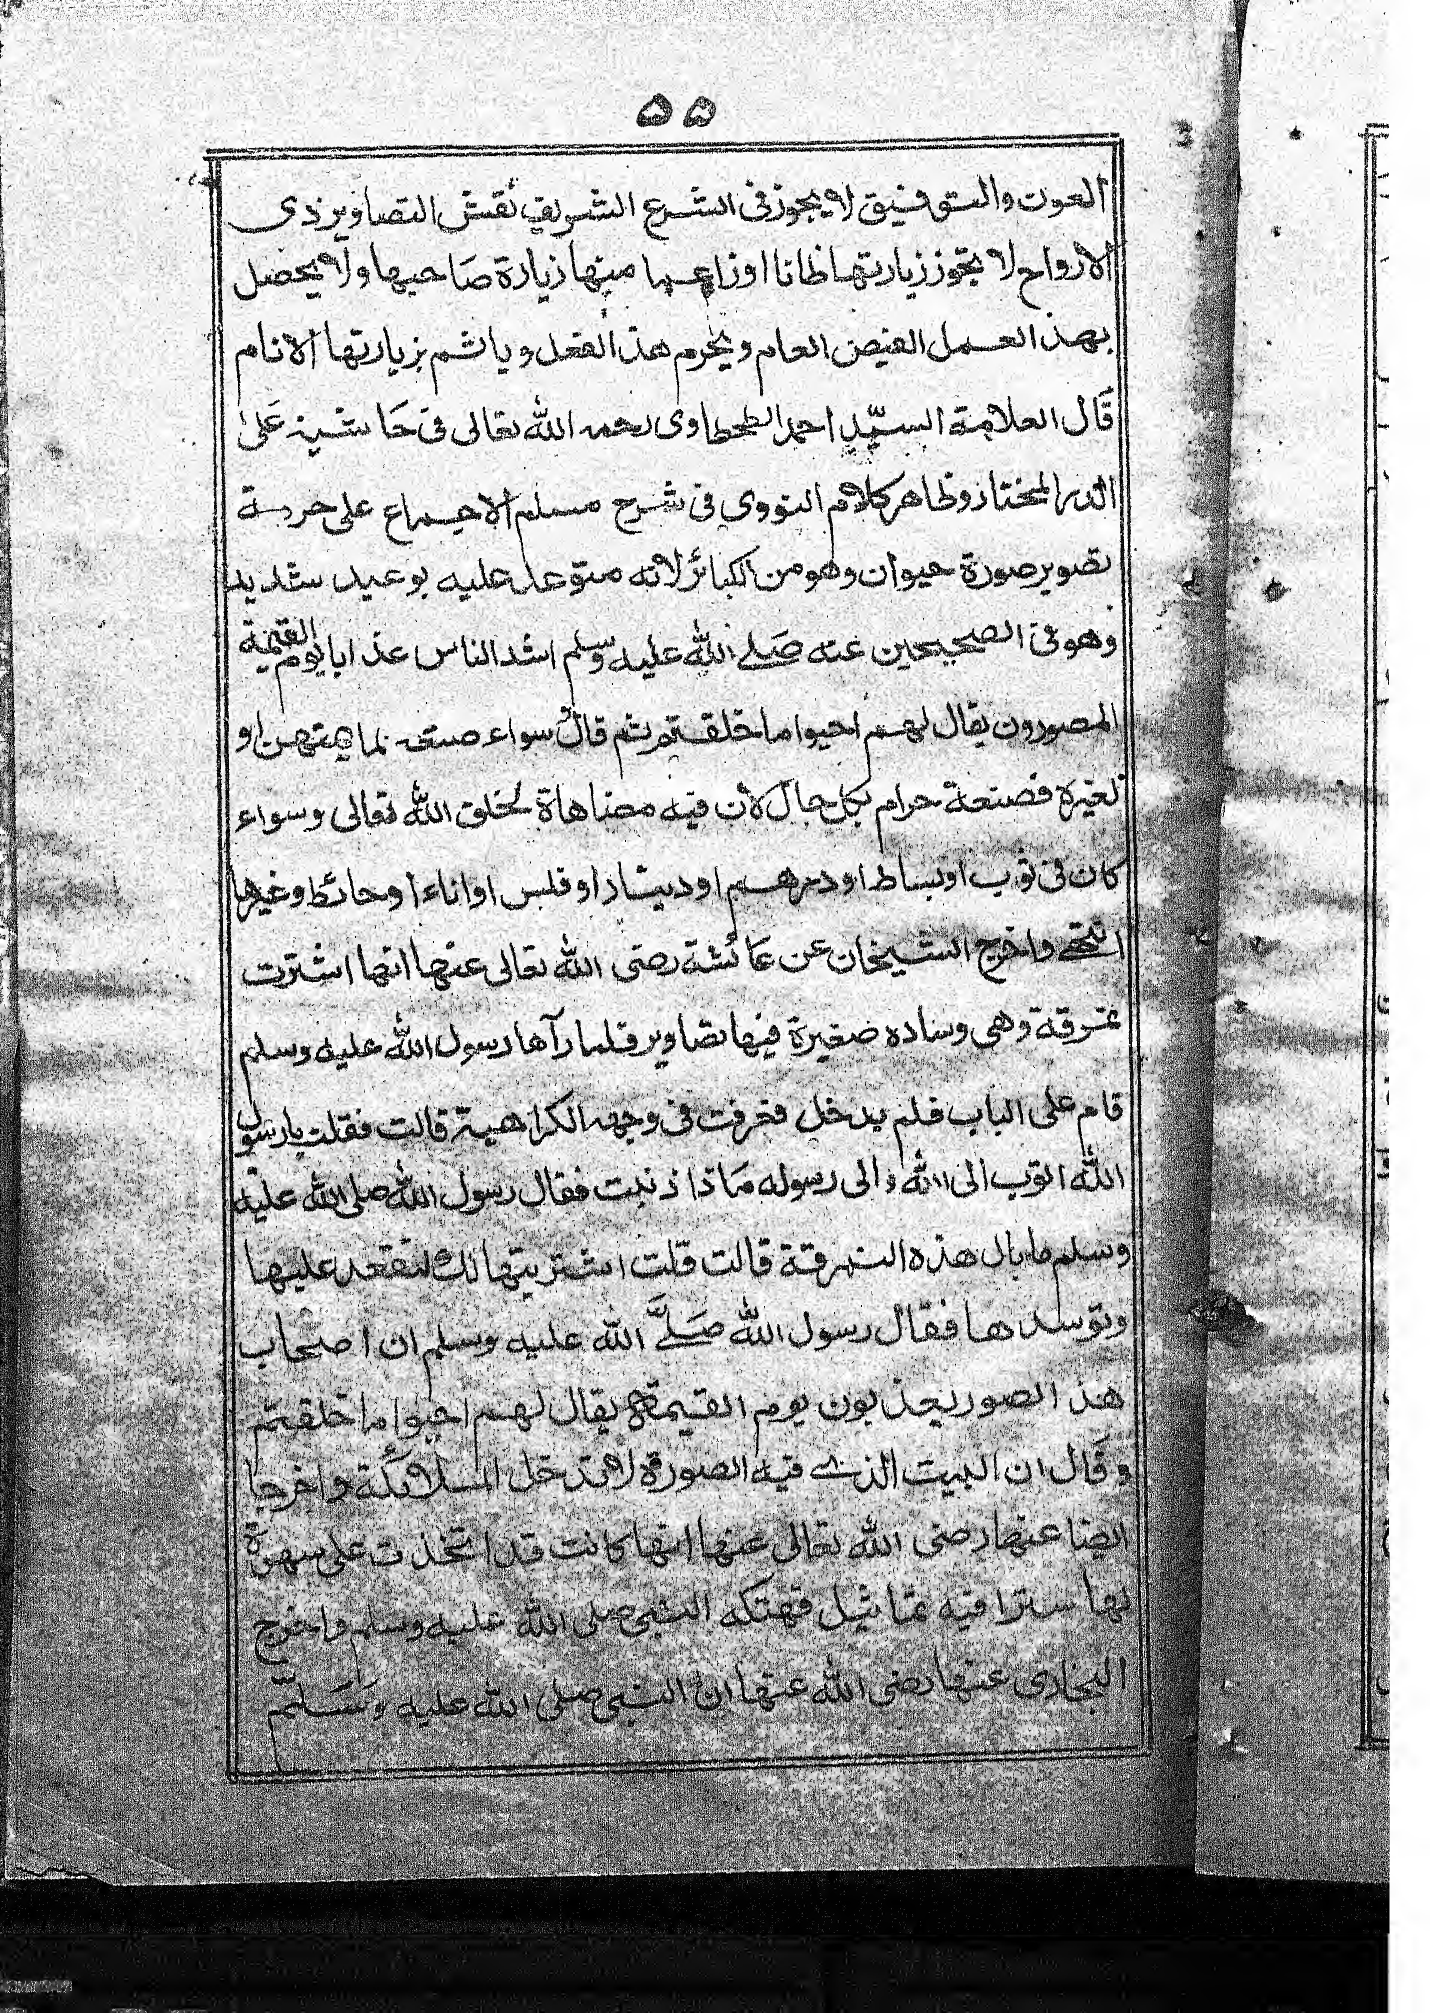 ٥٥
العون والتوفيق لا يجوز فى الشرع الشريف نقش التصاوير ذى
الارواح لا يجوز زيارتها ظانا او زاعما منها زيارة صاحبها ولا يحصل
بهذ العمل الفيض العام ويحرم هذ الفعل وياثم بزيارتها الانام
قال العلامة السيّد احمد الطحطاوى رحمه الله تعالى فى حاشيته على
الدر المختار وظاهر كلام النووى فى شرح مسلم الاجماع على حرمة
تصوير صورة حيوان وهو من الكبائر لانه متوعد عليه بوعيد شديد
وهو فى الصحيحين عنه صلے الله عليه وسلم اشد الناس عذابا يوم القيمة
المصورون يقال لهم احيوا ما خلقتم ثم قال سواء صنعه لما يمتهن او
لغيره فصنعة حرام بكل حال لان فيه مضاهاة لخلق الله تعالى وسواء
كان فى ثوب او بساط او درهم او دينار او فلس او اناء او حائط وغيرها
انتهے واخرج الشيخان عن عائشة رضى الله تعالى عنها انها اشترت
نمرقة وهى وساده صغيرة فيها تصاوير فلما رآها رسول الله عليه وسلم
قام على الباب فلم يدخل فعرفت فى وجهه الكراهية قالت فقلت يا رسول
الله اتوب الى الله والى رسوله ماذا ذنبت فقال رسول الله صلى الله عليه
وسلم ما بال هذه النمرقة قالت قلت اشتريتها لك لتقعد عليها
وتوسدها فقال رسول الله صَلےَّ الله عليه وسلم ان اصحاب
هذ الصور يعذبون يوم القيمة يقال لهم احيوا ما خلقتم
وقال ان البيت الذے فيه الصورة لا تدخل الملائكة واخرجا
ايضا عنها رضى الله تعالى عنها انها كانت قد اتخذت على سهوة
لها سترا فيه تماثيل فهتكه النبى صلى الله عليه وسلم واخرج
البخارى عنها رضى الله عنها ان النبى صلى الله عليه وَسَلَّم